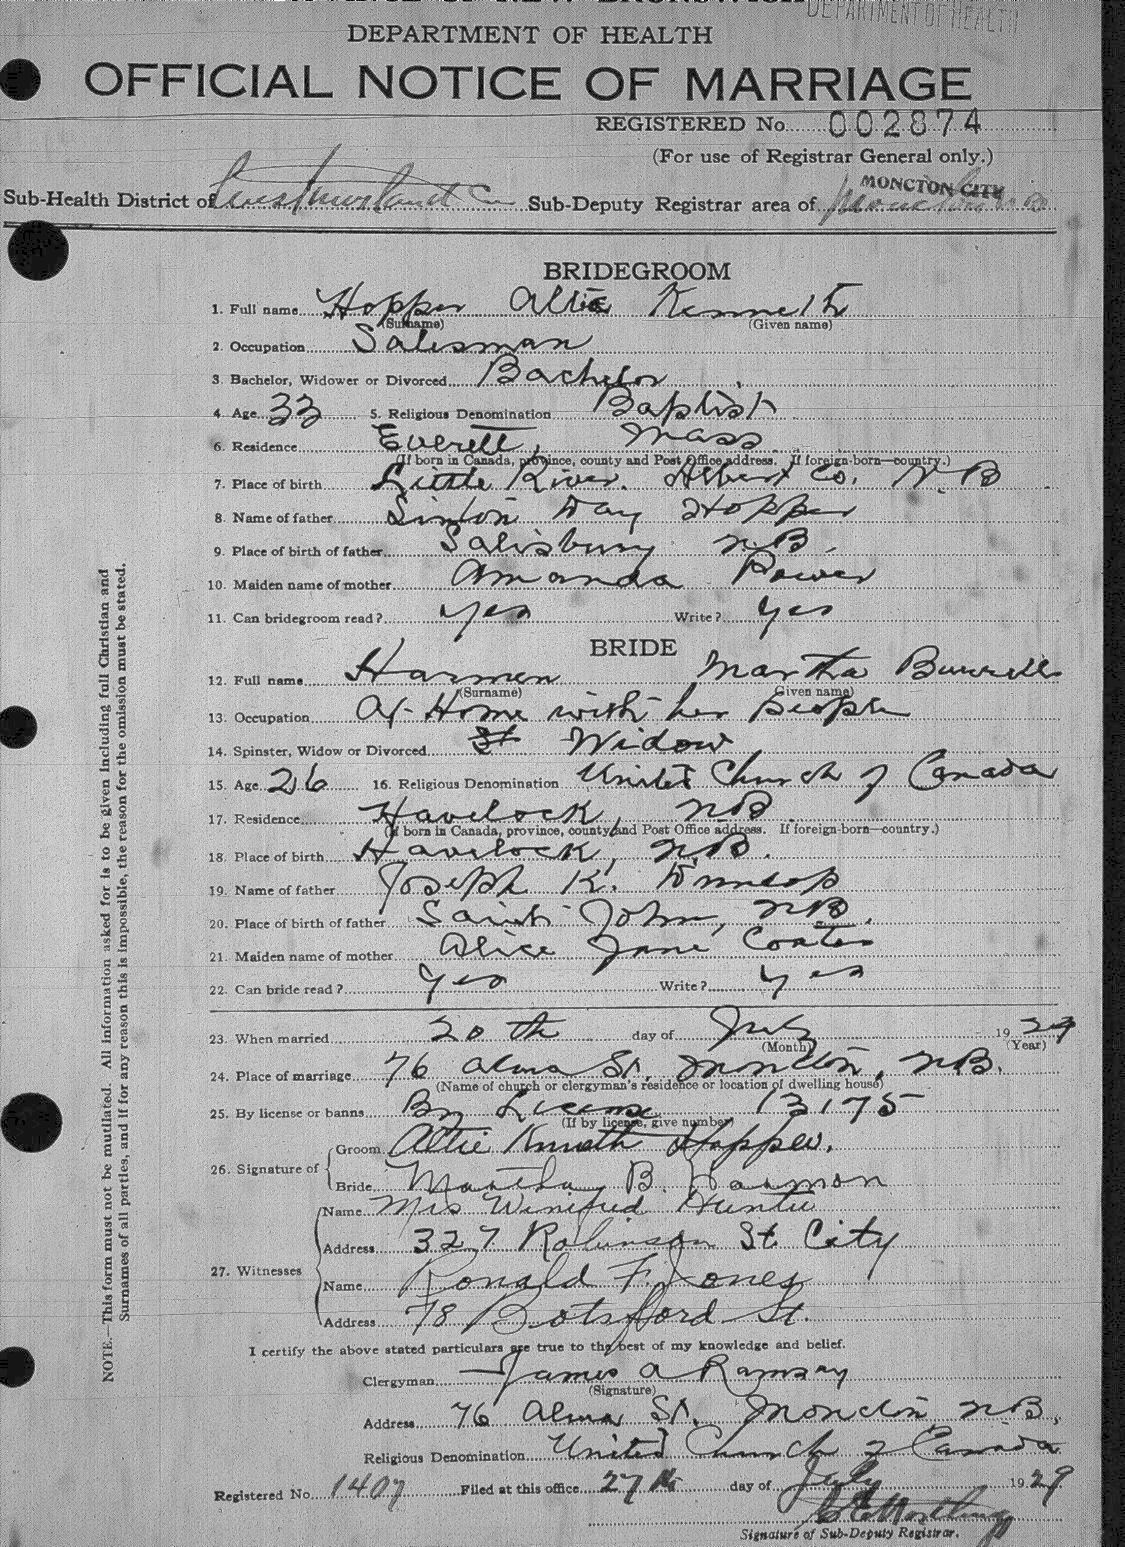 DEPARTMENT OF HEALTH
DEPARTMENT OF HEALTH
OFFICIAL NOTICE OF MARRIAGE
REGISTERED No. 002874
(For use of Registrar General only.)
MONCTON CITY
Sub-Health District of Westmorland Co Sub-Deputy Registrar area of Moncton N B
BRIDEGROOM
1. Full name Hopper Altie Kenneth
(Surname) (Given name)
2. Occupation Salesman
3. Bachelor, Widower or Divorced Bachelor
4. Age 33 5. Religious Denomination Baptist
6. Residence Everett, Mass
(If born in Canada, province, county and Post Office address. If foreign-born—country.)
7. Place of birth Little River. Albert Co. N-B
8. Name of father Day Hopper
9. Place of birth of father Salisbury N.B.
10. Maiden name of mother Amanda Power
11. Can bridegroom read? Yes Write? Yes
BRIDE
12. Full name Harmon Martha
(Surname) (Given name)
13. Occupation At Home with her People
14. Spinster, Widow or Divorced St Widow
15. Age 26 16. Religious Denomination United Church of Canada
17. Residence Havelock, NB
(If born in Canada, province, county and Post Office address. If foreign-born—country.)
18. Place of birth Havelock, N.B.
19. Name of father Joseph K. Dunlop
20. Place of birth of father Saint John, NB.
21. Maiden name of mother Alice Jane Coates
22. Can bride read? Yes Write? Yes
23. When married 20 th day of July 19 29
(Month) (Year)
24. Place of marriage 76 Alma St. Moncton, NB.
(Name of church or clergyman's residence or location of dwelling house)
25. By license or banns By License 13175
(If by license, give number)
26. Signature of
Groom Altie Kenneth Hopper.
Bride Martha B. Harmon
27. Witnesses
Name Mrs Winifred Hunter
Address 327 Robinson St. City
Name Ronald F. Jones
Address 78 Botsford St.
I certify the above stated particulars are true to the best of my knowledge and belief.
Clergyman James A Ramsay
(Signature)
Address 76 Alma St. Moncton NB,
Religious Denomination United Church of Canada
Registered No. 1407 Filed at this office 27 th day of July 1929
Signature of Sub-Deputy Registrar.
NOTE.—This form must not be mutilated. All information asked for is to be given including full Christian and
Surnames of all parties, and if for any reason this is impossible, the reason for the omission must be stated.